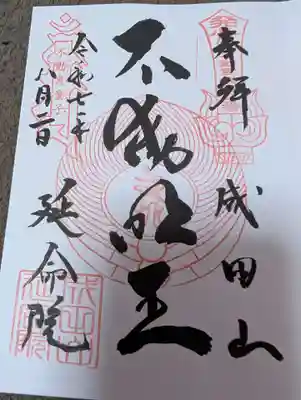 奉拝
成田山
不動明王
令和七年
八月二日
延命院